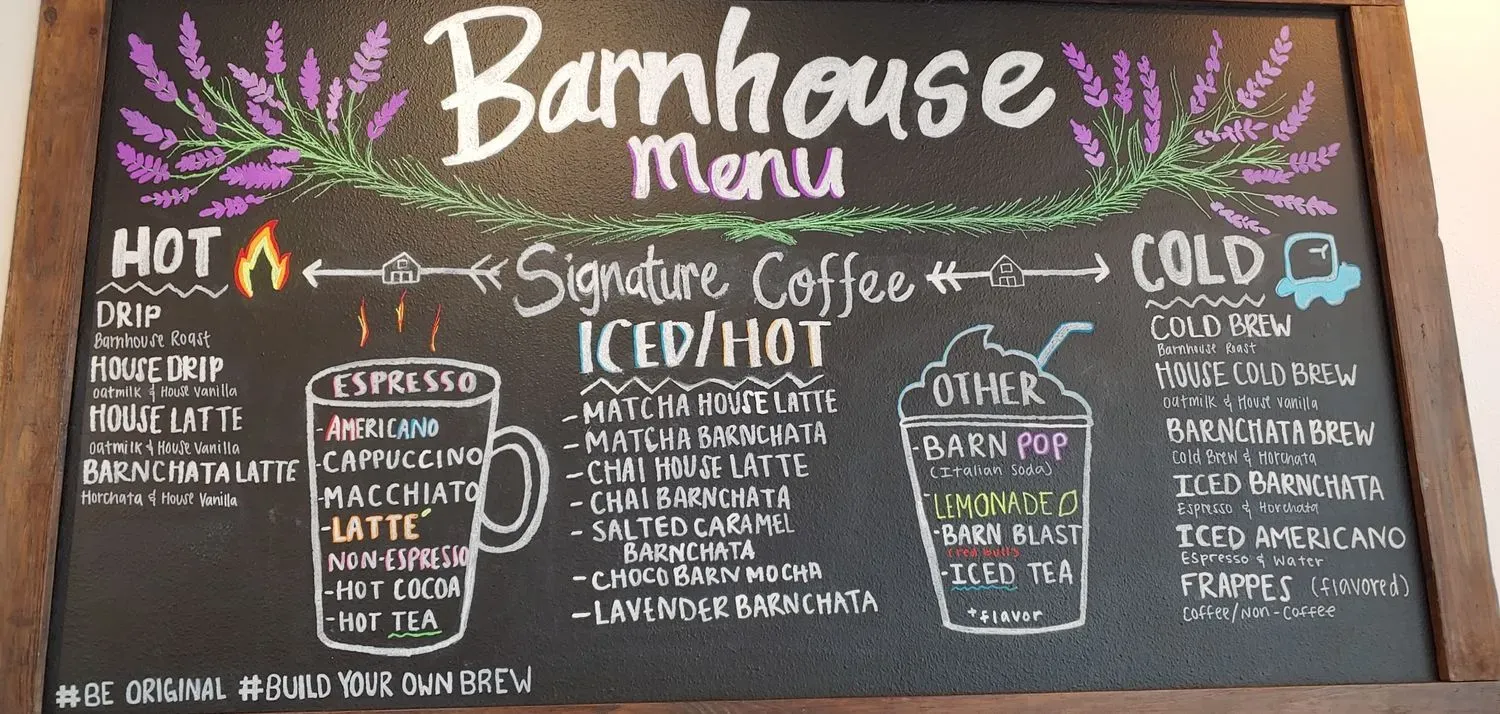 Barnhouse
menu
HOT
DRIP
Barnhouse Roast
HOUSE DRIP
oatmilk & House Vanilla
HOUSE LATTE
oatmilk & House Vanilla
BARNCHATA LATTE
Horchata & House Vanilla
Signature Coffee
ESPRESSO
-AMERICANO
-CAPPUCCINO
-MACCHIATO
-LATTE
NON-ESPRESSO
-HOT COCOA
-HOT TEA
ICED/HOT
-MATCHA HOUSE LATTE
-MATCHA BARNCHATA
-CHAI HOUSE LATTE
-CHAI BARNCHATA
-SALTED CARAMEL
BARNCHATA
-CHOCO BARN MOCHA
-LAVENDER BARNCHATA
OTHER
-BARN POP
(Italian Soda)
-LEMONADE
-BARN BLAST
(red bull)
-ICED TEA
+flavor
COLD
COLD BREW
Barnhouse Roast
HOUSE COLD BREW
oatmilk & House Vanilla
BARNCHATA BREW
Cold Brew & Horchata
ICED BARNCHATA
Espresso & Horchata
ICED AMERICANO
Espresso & Water
FRAPPES (flavored)
Coffee/Non-Coffee
#BE ORIGINAL #BUILD YOUR OWN BREW